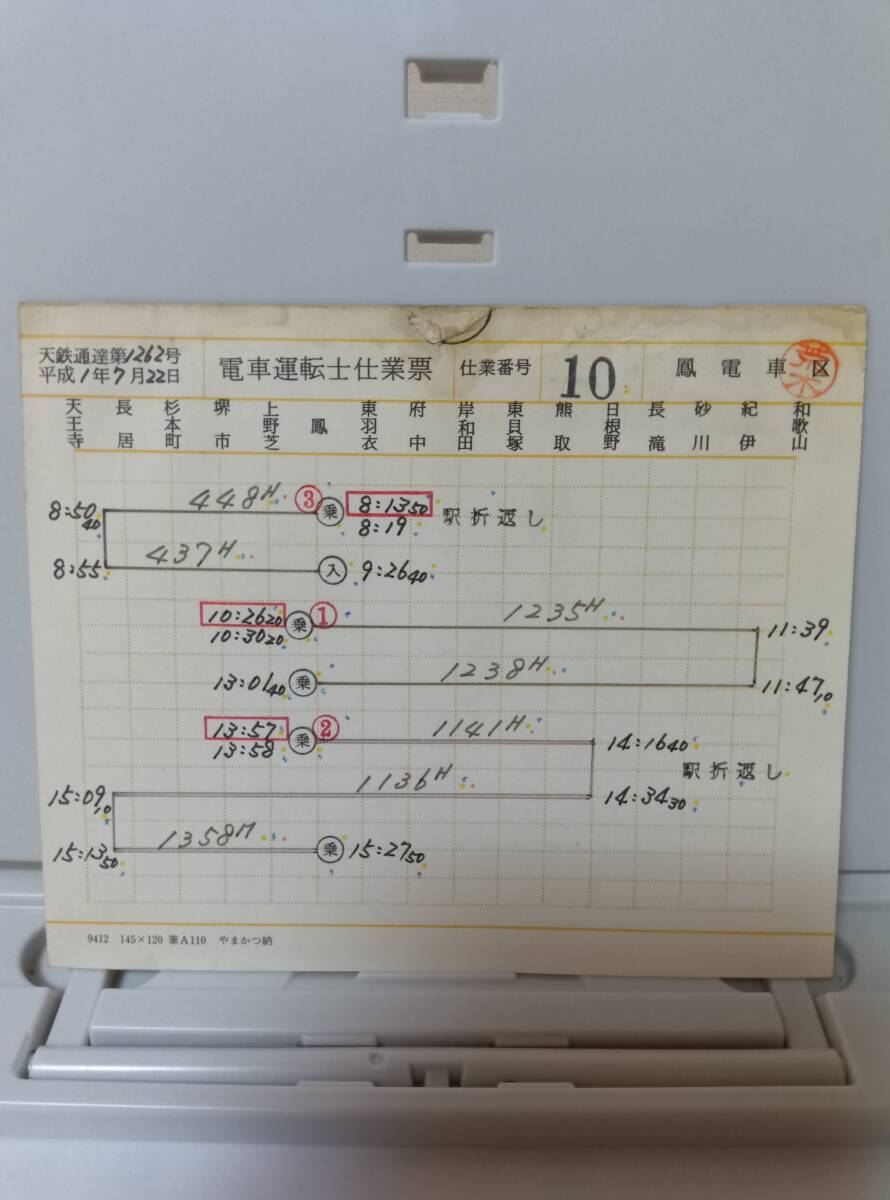 天鉄通達第1262号
平成1年7月22日
電車運転士仕業票
仕業番号
10
鳳電車区
天王寺 長居 杉本町 堺市 上野芝 鳳 東羽衣 府中 岸和田 東貝塚 熊取 日根野 長滝 砂川 紀伊 和歌山
448H ③ 乗 8:1350
8:50 40 8:19 駅折返し
437H
8:55 入 9:2640
10:2620 ① 1235H
10:3020 乗 11:39
1238H
13:0140 乗 11:4710
13:57 ② 1141H
13:58 乗 14:1640
駅折返し
1136H
15:0910 14:3430
1358H
15:1350 乗 15:2750
9412 145×120 筆A110 やまかつ納